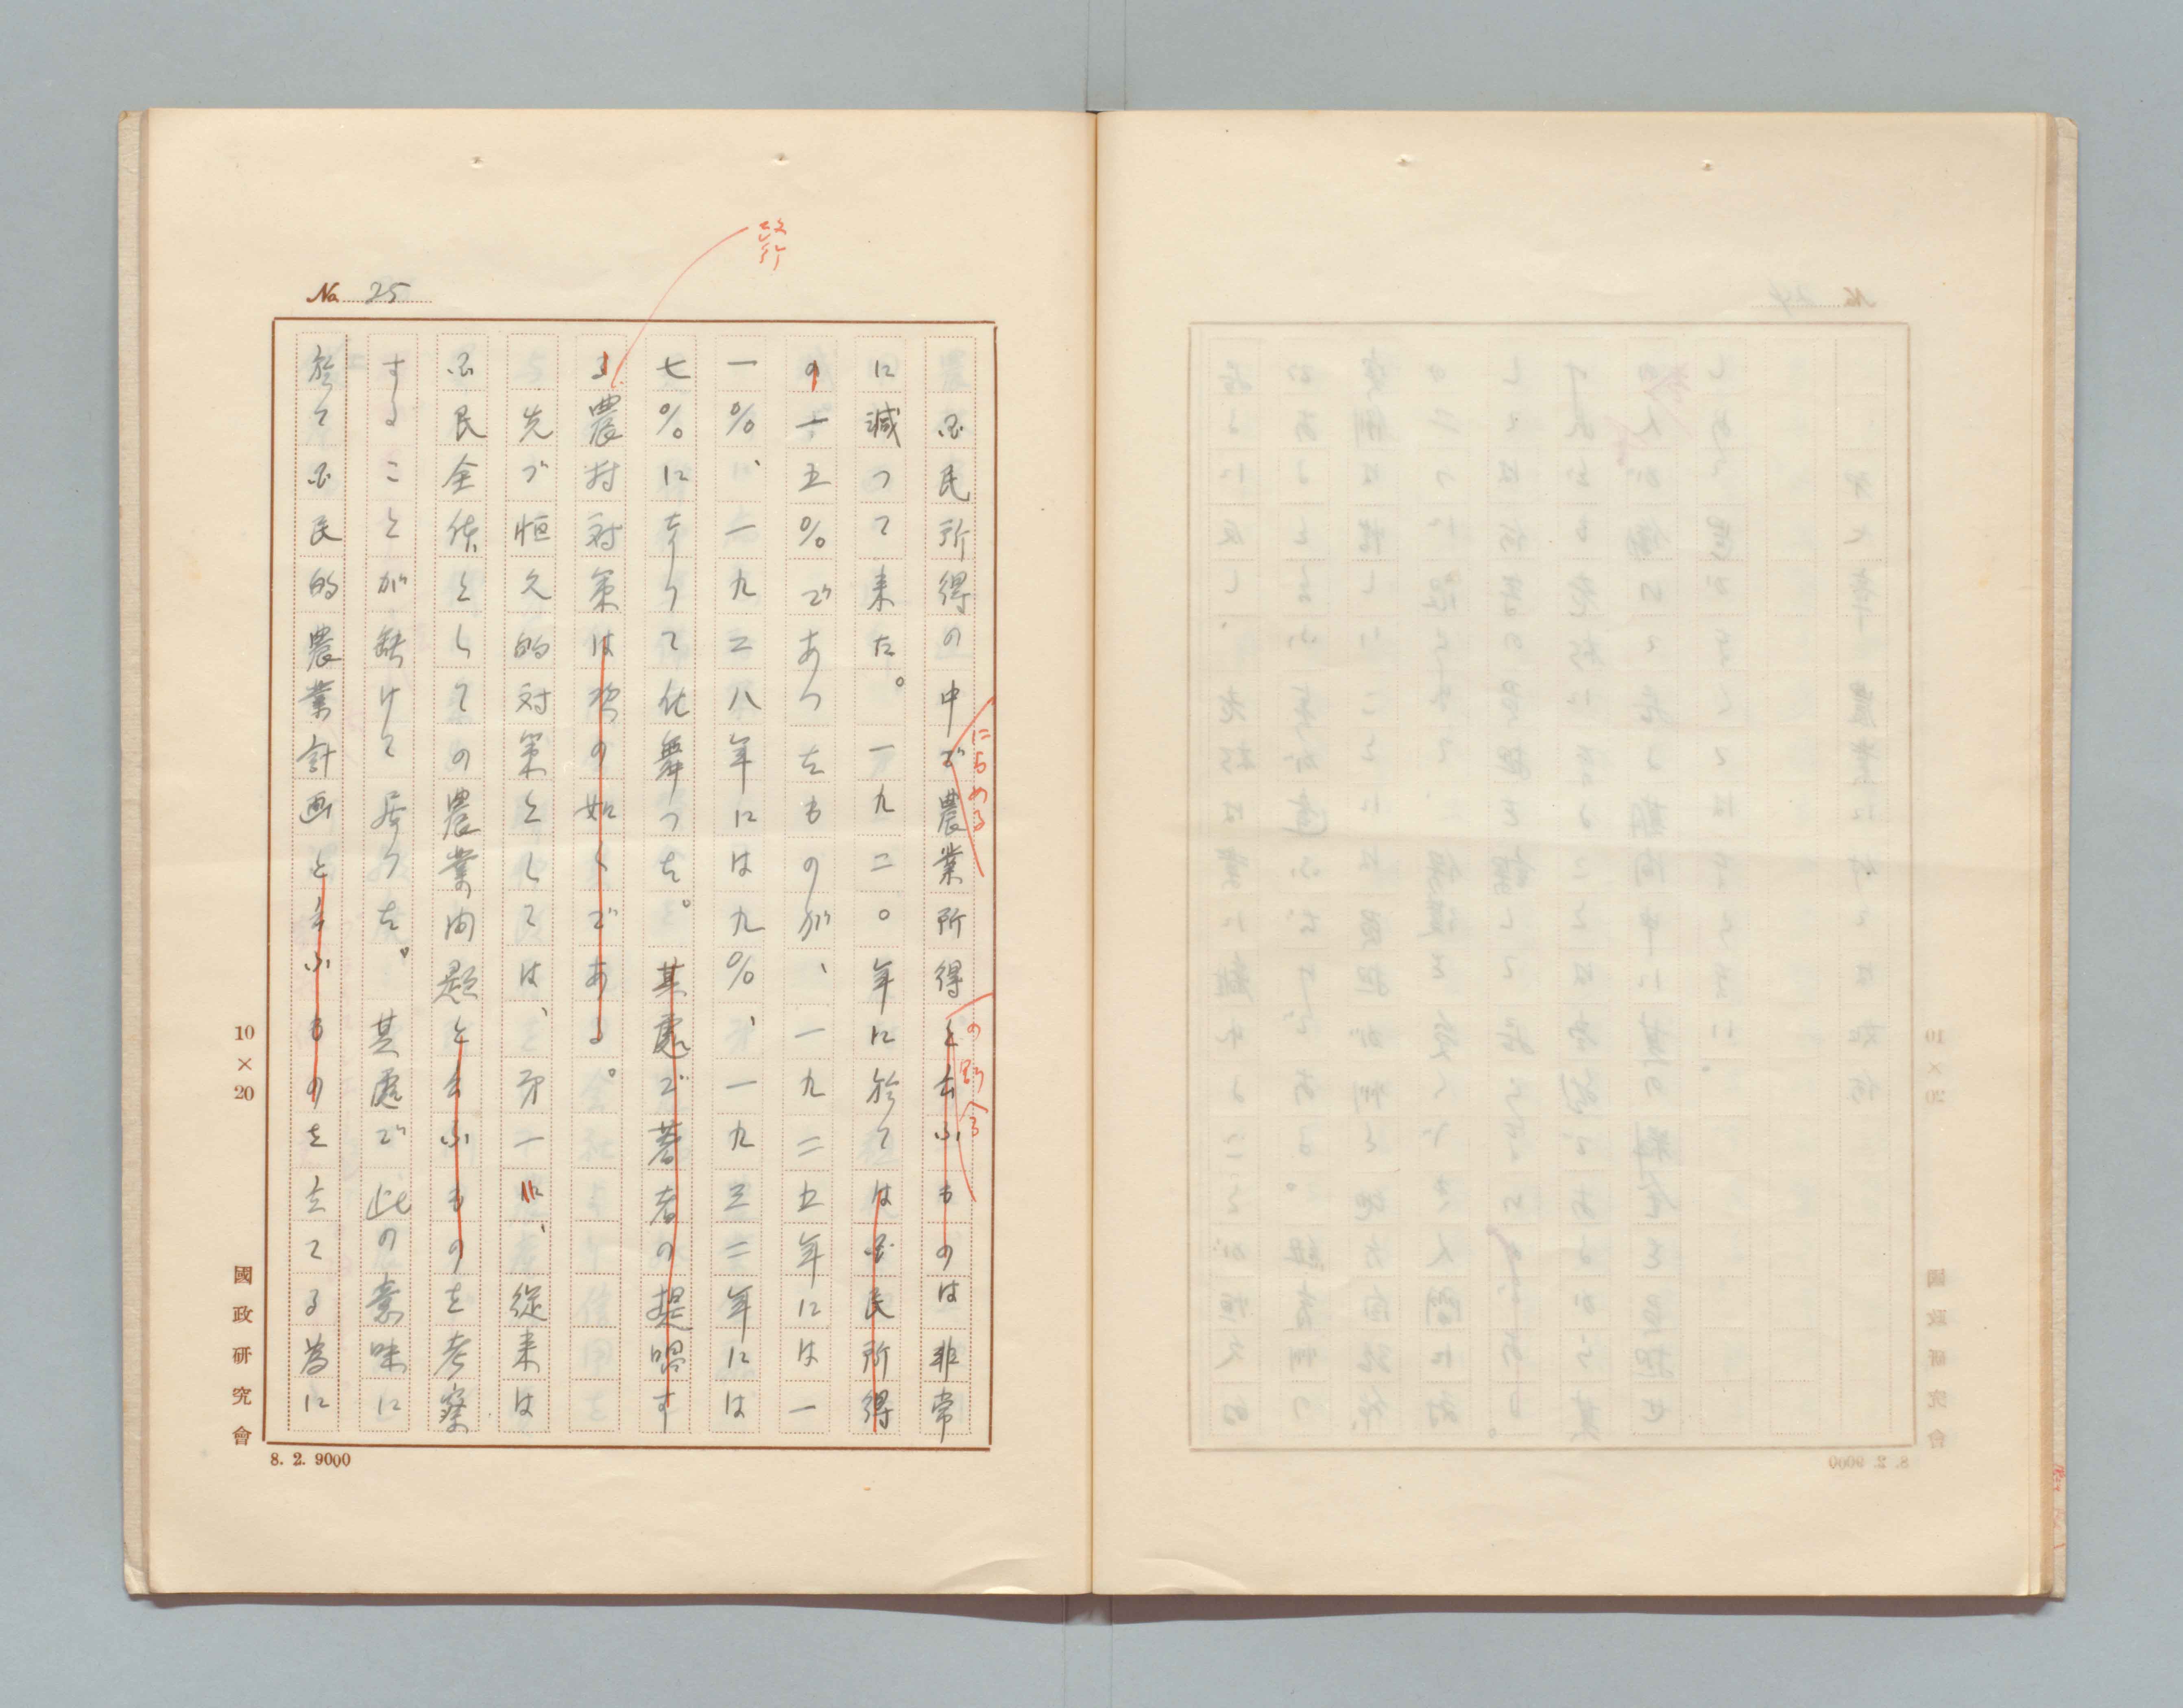 改行
No. 25
国民所得の中で農業所得と云ふものは非常
にしめる
の割合
に減つて来た。一九二〇年に於ては国民所得
の一五%であつたものが、一九二五年には一
一%、一九二八年には九%、一九三二年には
七%になつて仕舞つた。其処で著者の提唱す
る農村対策は次の如くである。
先づ恒久的対策としては、第一に、従来は
国民全体としての農業問題と云ふものを考察
することが缺けて居つた。其処で此の意味に
於て国民的農業計画と云ふものを立てる為に
10×20
國政研究會
8. 2. 9000